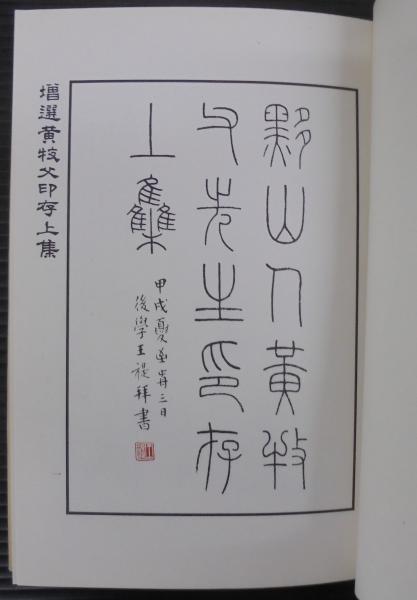 黟山人黃牧
父先生印存
上集
甲戌夏至歬三日
後學王禔拜書
增選黃牧父印存上集